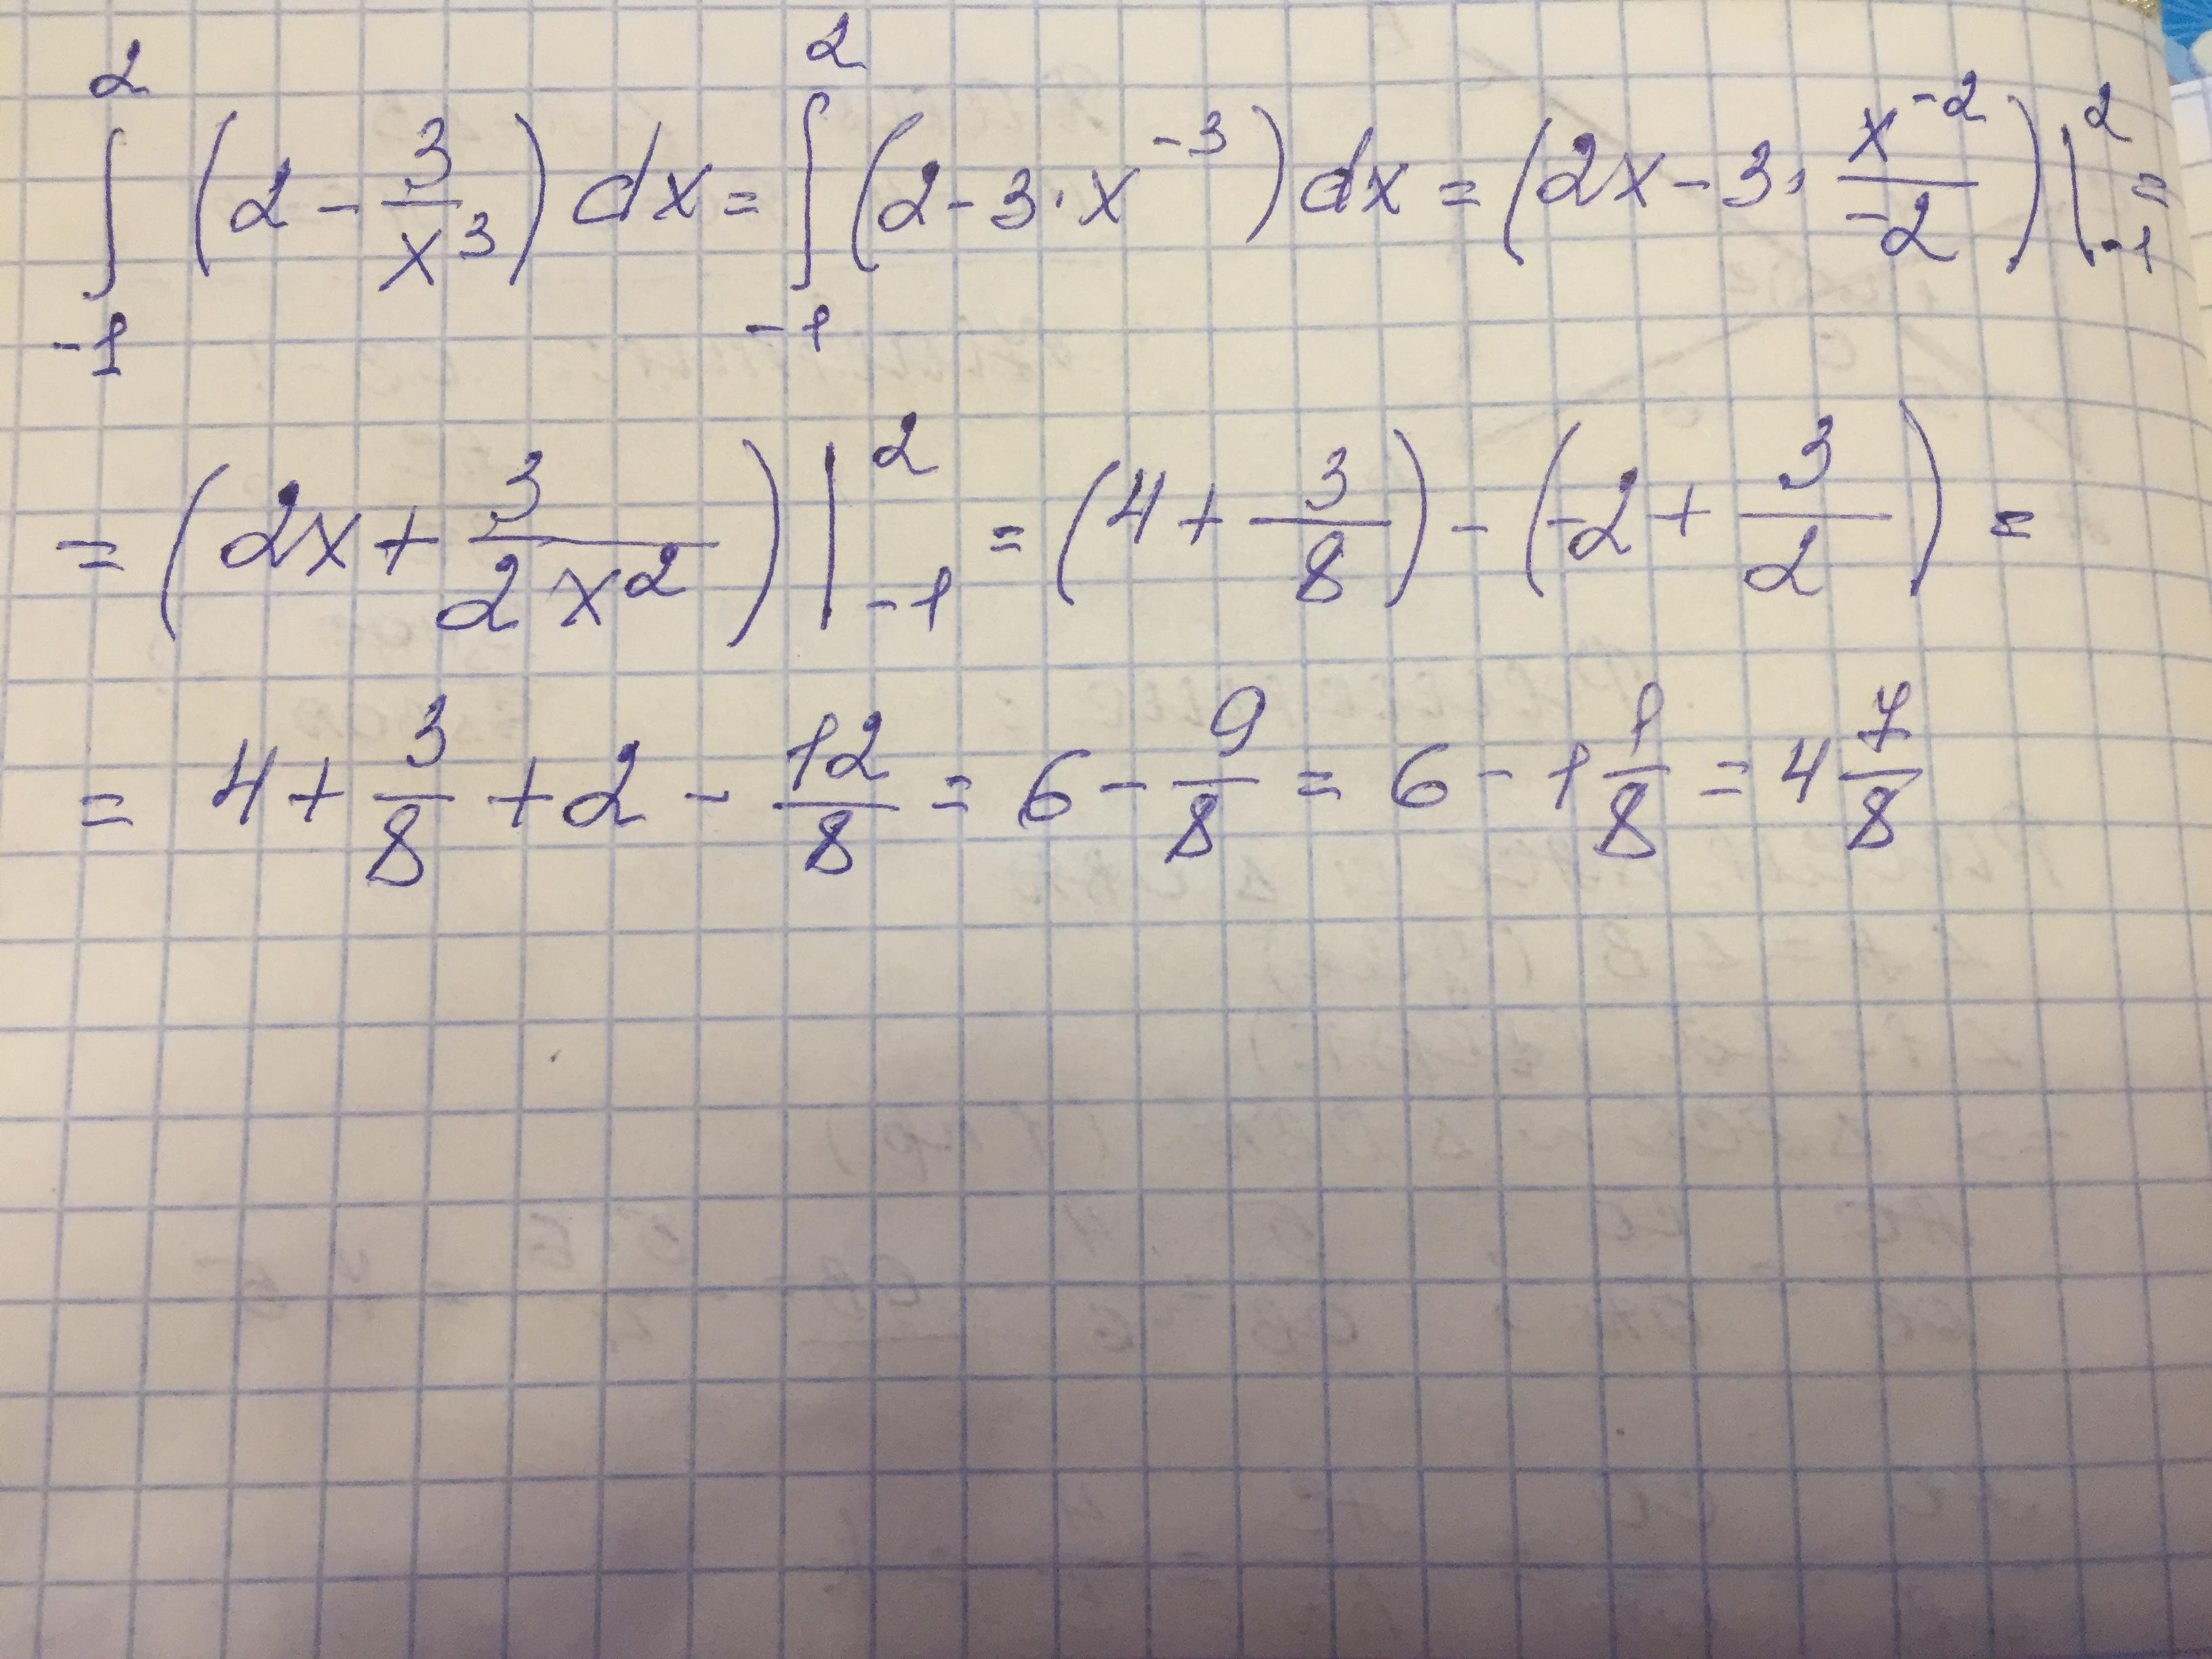 ∫₋₁² (2 - 3/x³) dx = ∫₋₁² (2 - 3 · x⁻³) dx = (2x - 3 · x⁻²/-2) |₋₁² =
= (2x + 3/2x²) |₋₁² = (4 + 3/8) - (-2 + 3/2) =
= 4 + 3/8 + 2 - 12/8 = 6 - 9/8 = 6 - 1 1/8 = 4 7/8